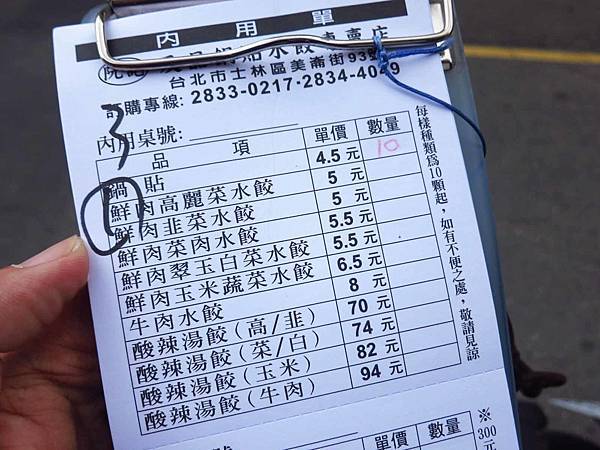 內用單
台北市士林區美崙街93號
訂購專線: 2833-0217·2834-4079
3
內用桌號:
品項 單價 數量
鍋貼 4.5 元 10
鮮肉高麗菜水餃 5 元
鮮肉韭菜水餃 5 元
鮮肉菜肉水餃 5.5 元
鮮肉翠玉白菜水餃 5.5 元
鮮肉玉米蔬菜水餃 6.5 元
牛肉水餃 8 元
酸辣湯餃(高/韭) 70 元
酸辣湯餃(菜/白) 74 元
酸辣湯餃(玉米) 82 元
酸辣湯餃(牛肉) 94 元
每樣種類為10顆起,如有不便之處,敬請見諒
單價 數量
4.5 元
※300元